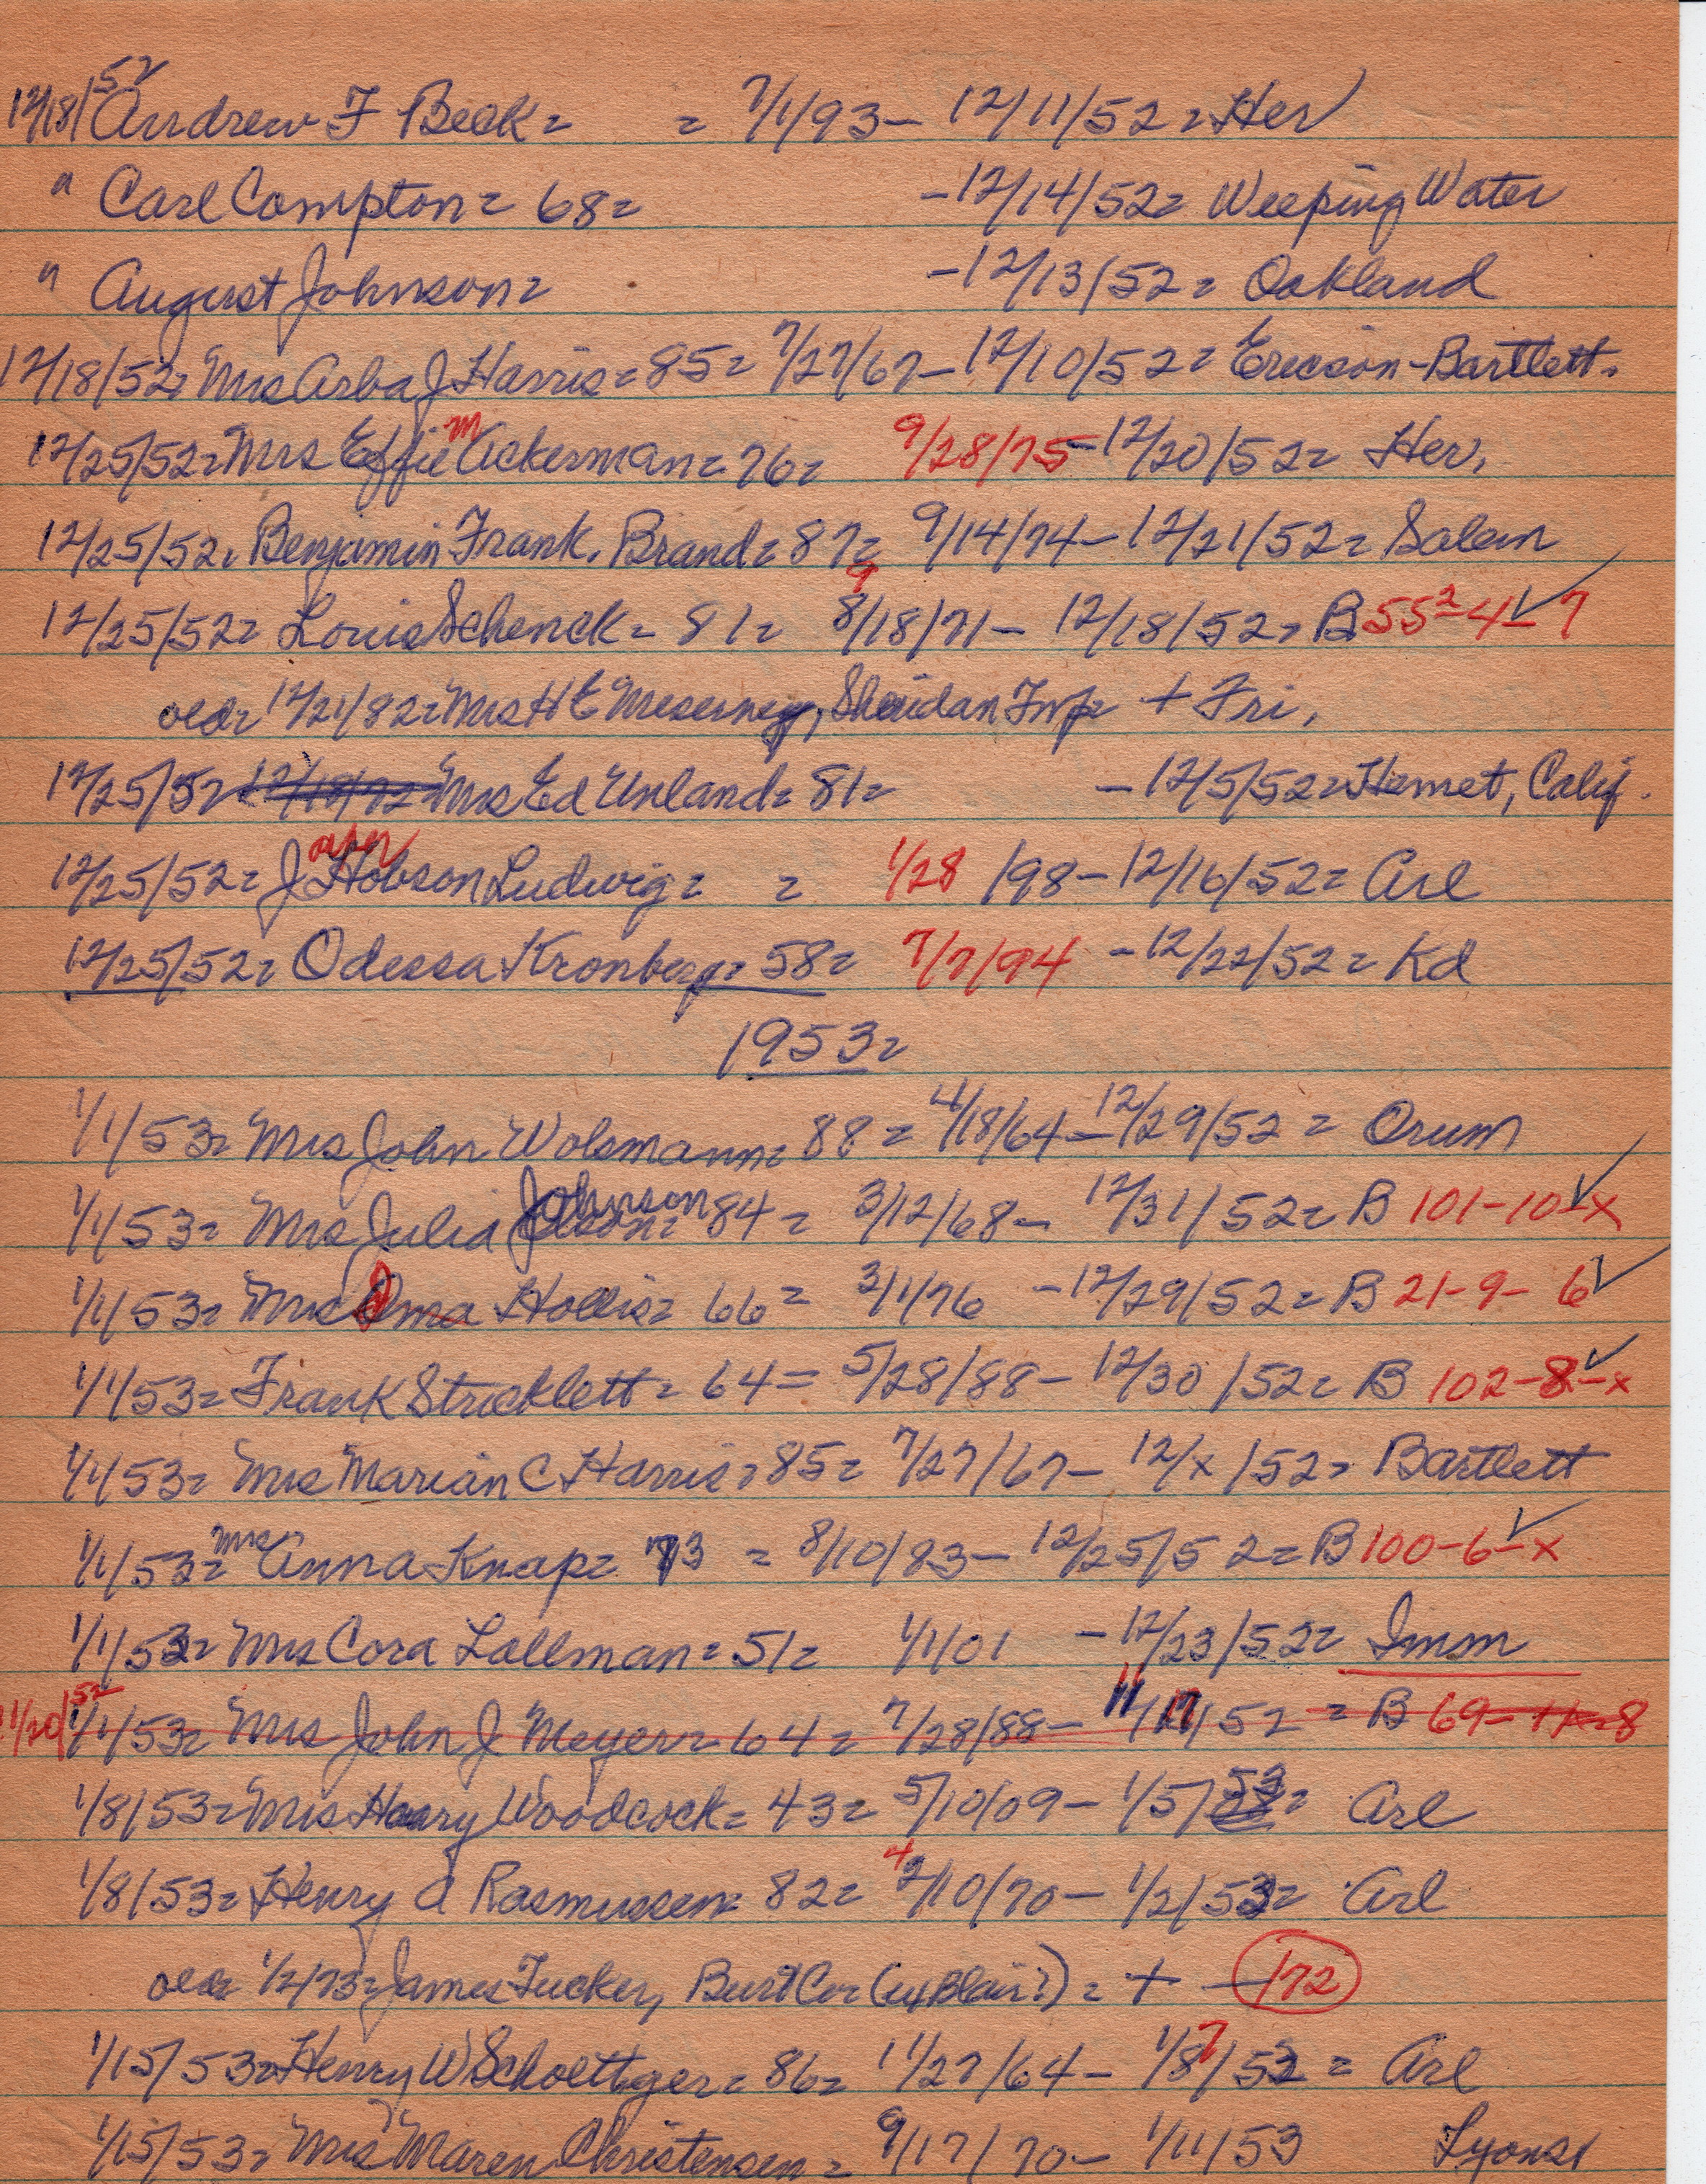 12/18/52 Andrew F Beck = = 7/1/93 - 12/11/52 = Her
" Carl Compton = 68 = - 12/14/52 = Weeping Water
" August Johnson = - 12/13/52 = Oakland
12/18/52 = Mrs Arba J Harris = 85 = 7/27/67 - 12/10/52 = Ericson - Bartlett.
12/25/52 = Mrs Effie M Ackerman = 76 = 9/28/75 - 12/20/52 = Her.
12/25/52 = Benjamin Frank. Brand = 87 = 9/14/74 - 12/21/52 = Salem
12/25/52 = Louis Schenck = 81 = 9 8/18/71 - 12/18/52 = B 55²-4-7 ✓
12/21/82 = Mrs H E Meservey, Sheridan Twp = + Fri,
12/25/52 12/18/72 = Mrs Ed Unland = 81 = - 12/5/52 = Hemet, Calif.
12/25/52 = J Hobson Ludwig = = 1/28/98 - 12/16/52 = Arl
12/25/52 = Odessa Kronberg = 58 = 7/7/94 - 12/22/52 = Kd
1953 =
1/1/53 = Mrs John Wolsmann = 88 = 4/18/64 - 12/29/52 = Orum
1/1/53 = Mrs Julia Johnson = 84 = 3/12/68 - 12/31/52 = B 101-10-x ✓
1/1/53 = Mrs Hollis = 66 = 3/1/76 - 12/29/52 = B 21-9-6 ✓
1/1/53 = Frank Stricklett = 64 = 5/28/88 - 12/30/52 = B 102-8-x ✓
1/1/53 = Mrs Marian C Harris = 85 = 7/27/67 - 12/x/52 = Bartlett
1/1/53 = Mrs Anna Knap = 73 = 8/10/83 - 12/25/52 = B 100-6-x ✓
1/1/53 = Mrs Cora Lallman = 51 = 1/1/01 - 12/23/52 = Imm
11/20/52 1/1/53 = Mrs John J Meyer = 64 = 7/28/88 - 11/17/52 = B 69-11-8
1/8/53 = Mrs Harry Woodcock = 43 = 5/10/09 - 1/5/53 = Arl
1/8/53 = Henry A Rasmussen = 82 = 4 2/10/70 - 1/2/53 = Arl
1/2/73 = James Tucker, Burt Co = (ex Blair?) = + - 172
1/15/53 = Henry W Schoettger = 86 = 11/27/64 - 1/8 7/53 = Arl
1/15/53 = Mrs Maren Christensen = 9/17/70 - 1/11/53 Lyons